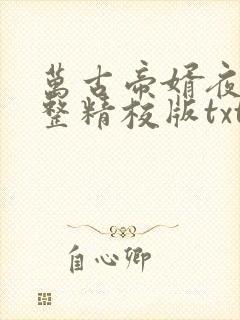 萬古帝婿夜
整精校版txt
自心卿